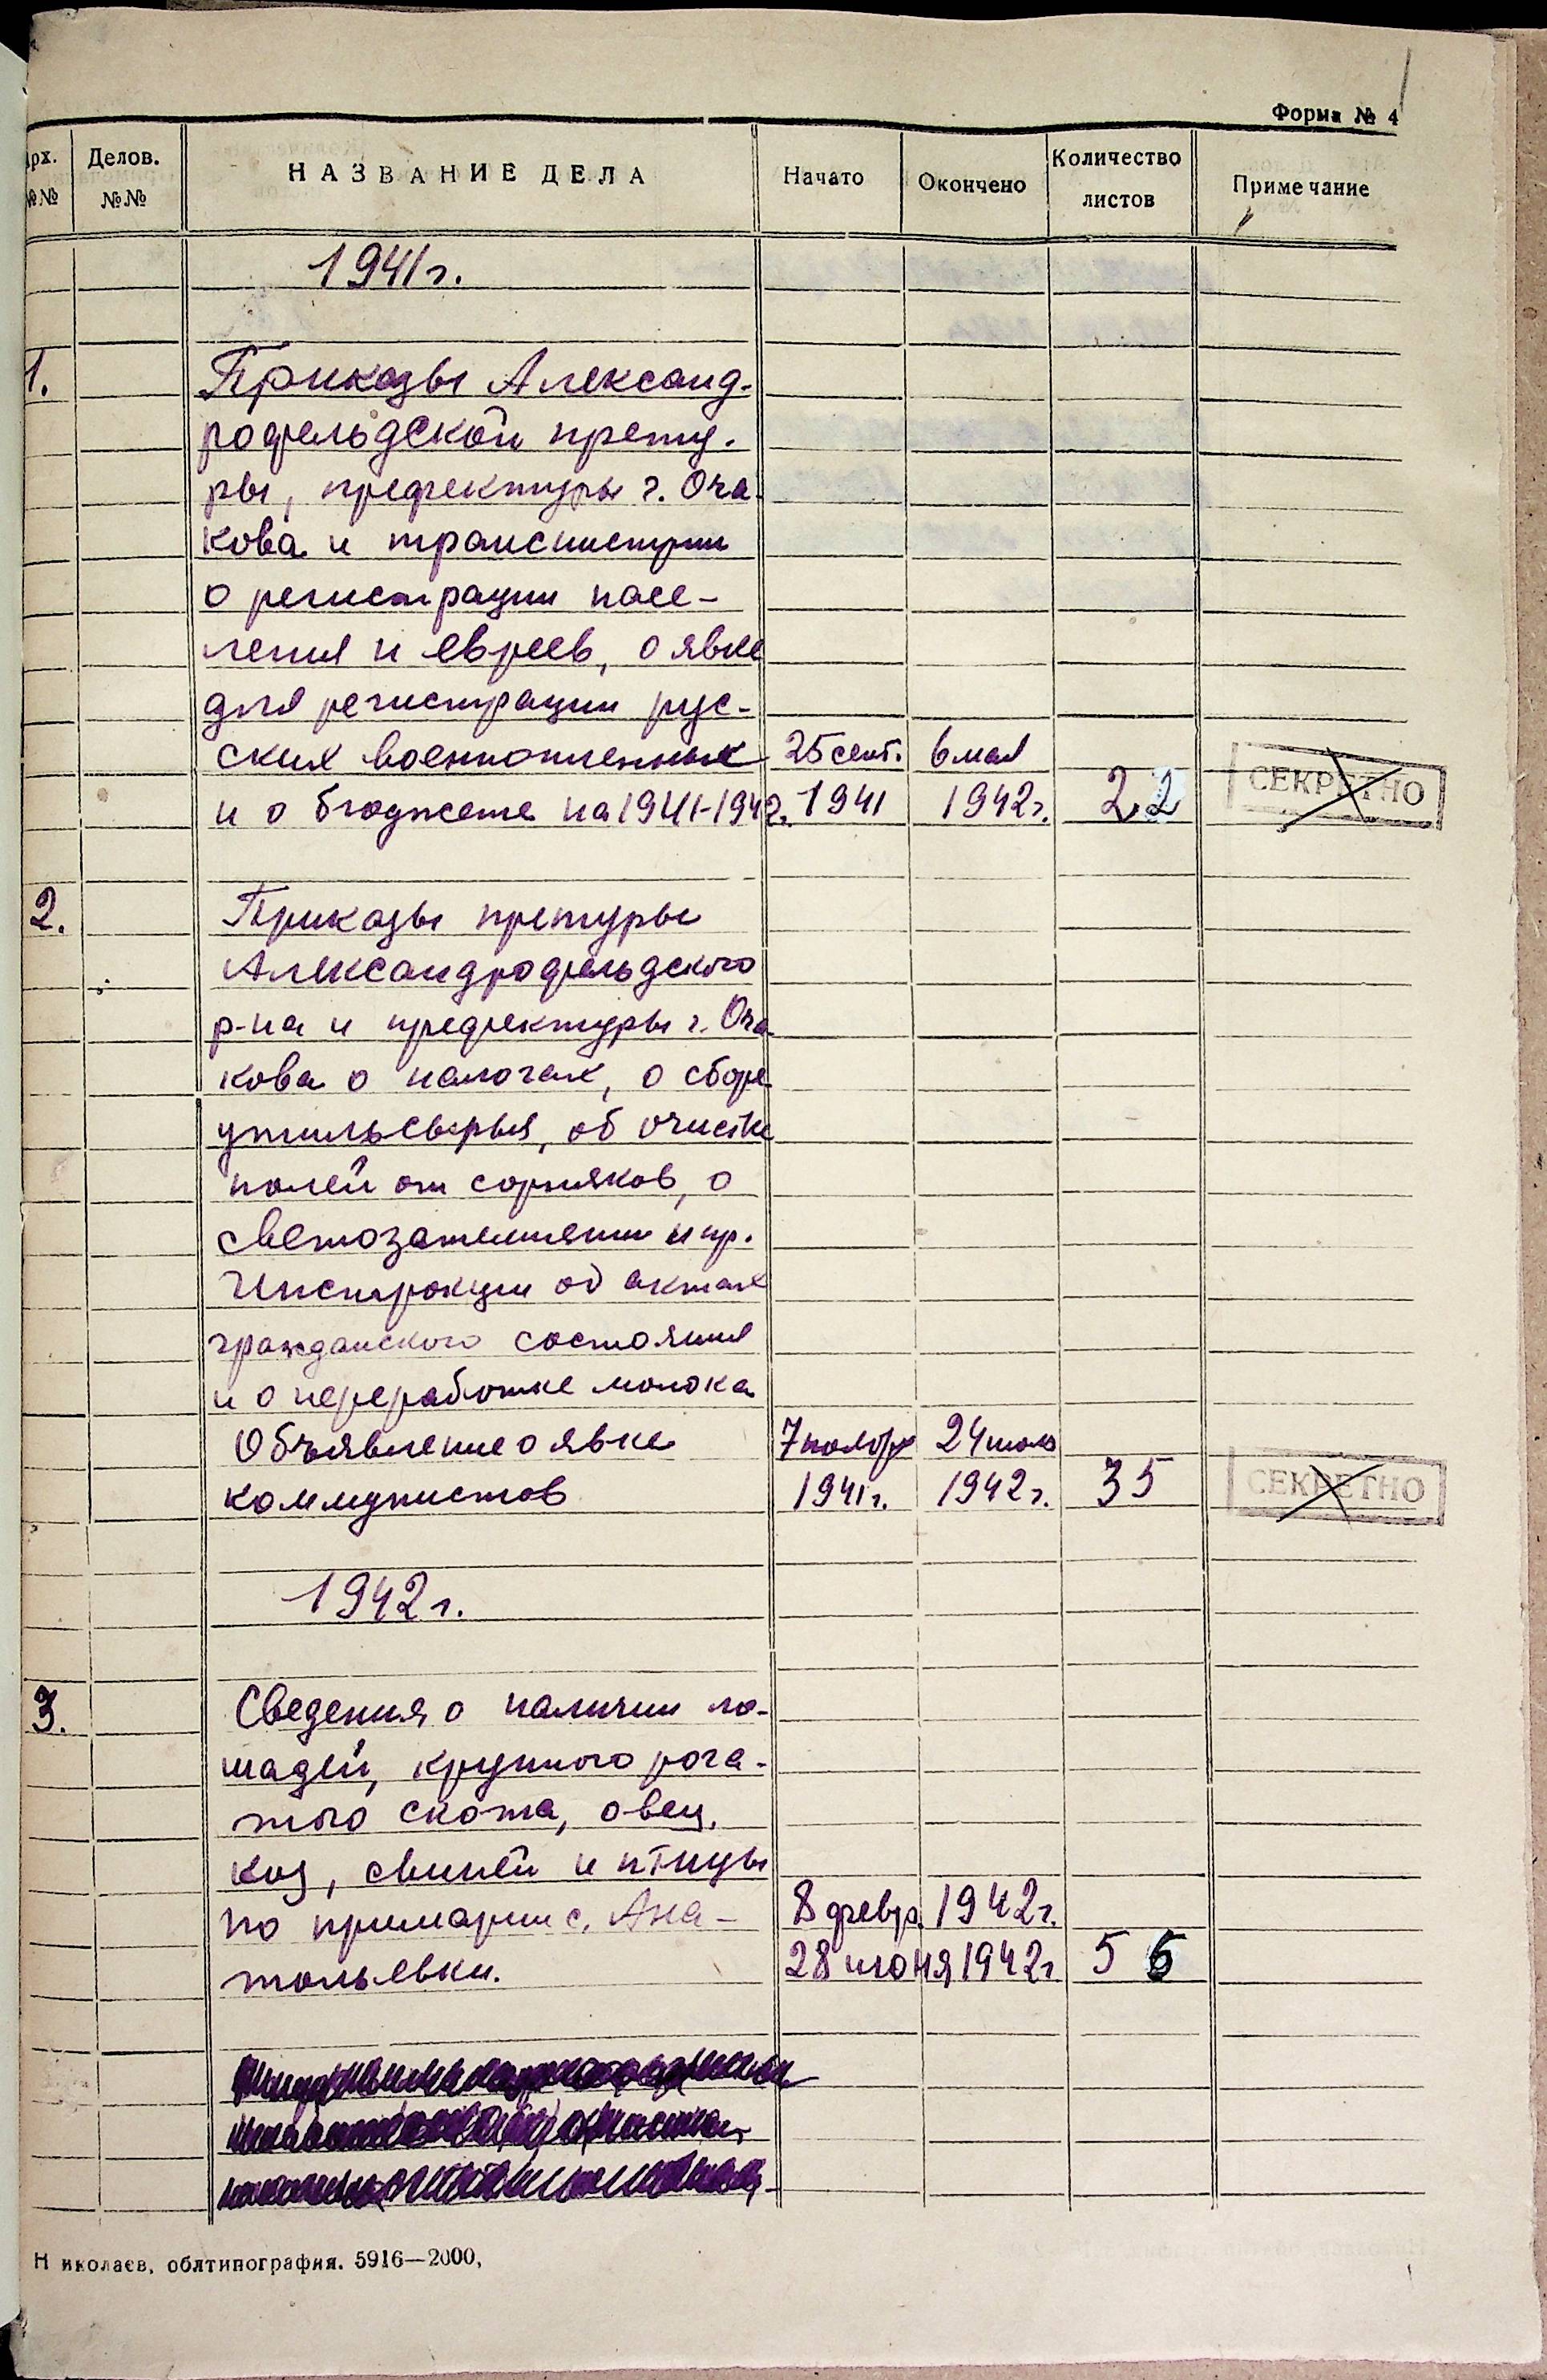 Форма № 4
Арх. №№
Делов. №№
НАЗВАНИЕ ДЕЛА
Начато
Окончено
Количество листов
Примечание
1941 г.
1. Приказы Александ-
рофельдской прету-
ры, префектуры г. Оча-
кова и транснистрии
о регистрации насе-
ления и евреев, о явке
для регистрации рус-
ских военнопленных 25 сент. 6 мая
и о бюджете на 1941-1942 г. 1941 1942 г. 22 СЕКРЕТНО
2. Приказы претуры
Александрофельдского
р-на и префектуры г. Оча-
кова о налогах, о сборе
утильсырья, об очистке
полей от сорняков, о
светозатемнении и пр.
Инструкции об актах
гражданского состояния
и о переработке молока
Объявление о явке 7 ноября 24 июль
коммунистов 1941 г. 1942 г. 35 СЕКРЕТНО
1942 г.
3. Сведения о наличии ло-
шадей, крупного рога-
того скота, овец,
коз, свиней и птицы
по примарии с. Ана- 8 февр. 1942 г.
тольевки. 28 июня 1942 г. 56
Николаев, облтипография. 5916—2000,